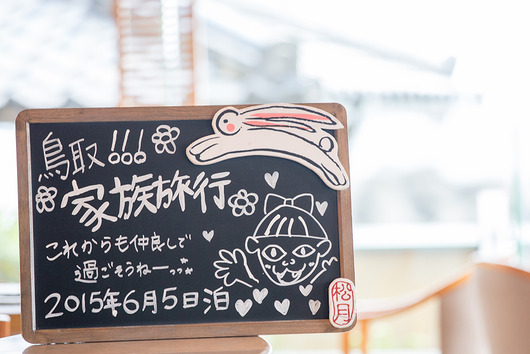 鳥取!!!
家族旅行
これからも仲良しで
過ごそうねー
2015年6月5日泊
松月